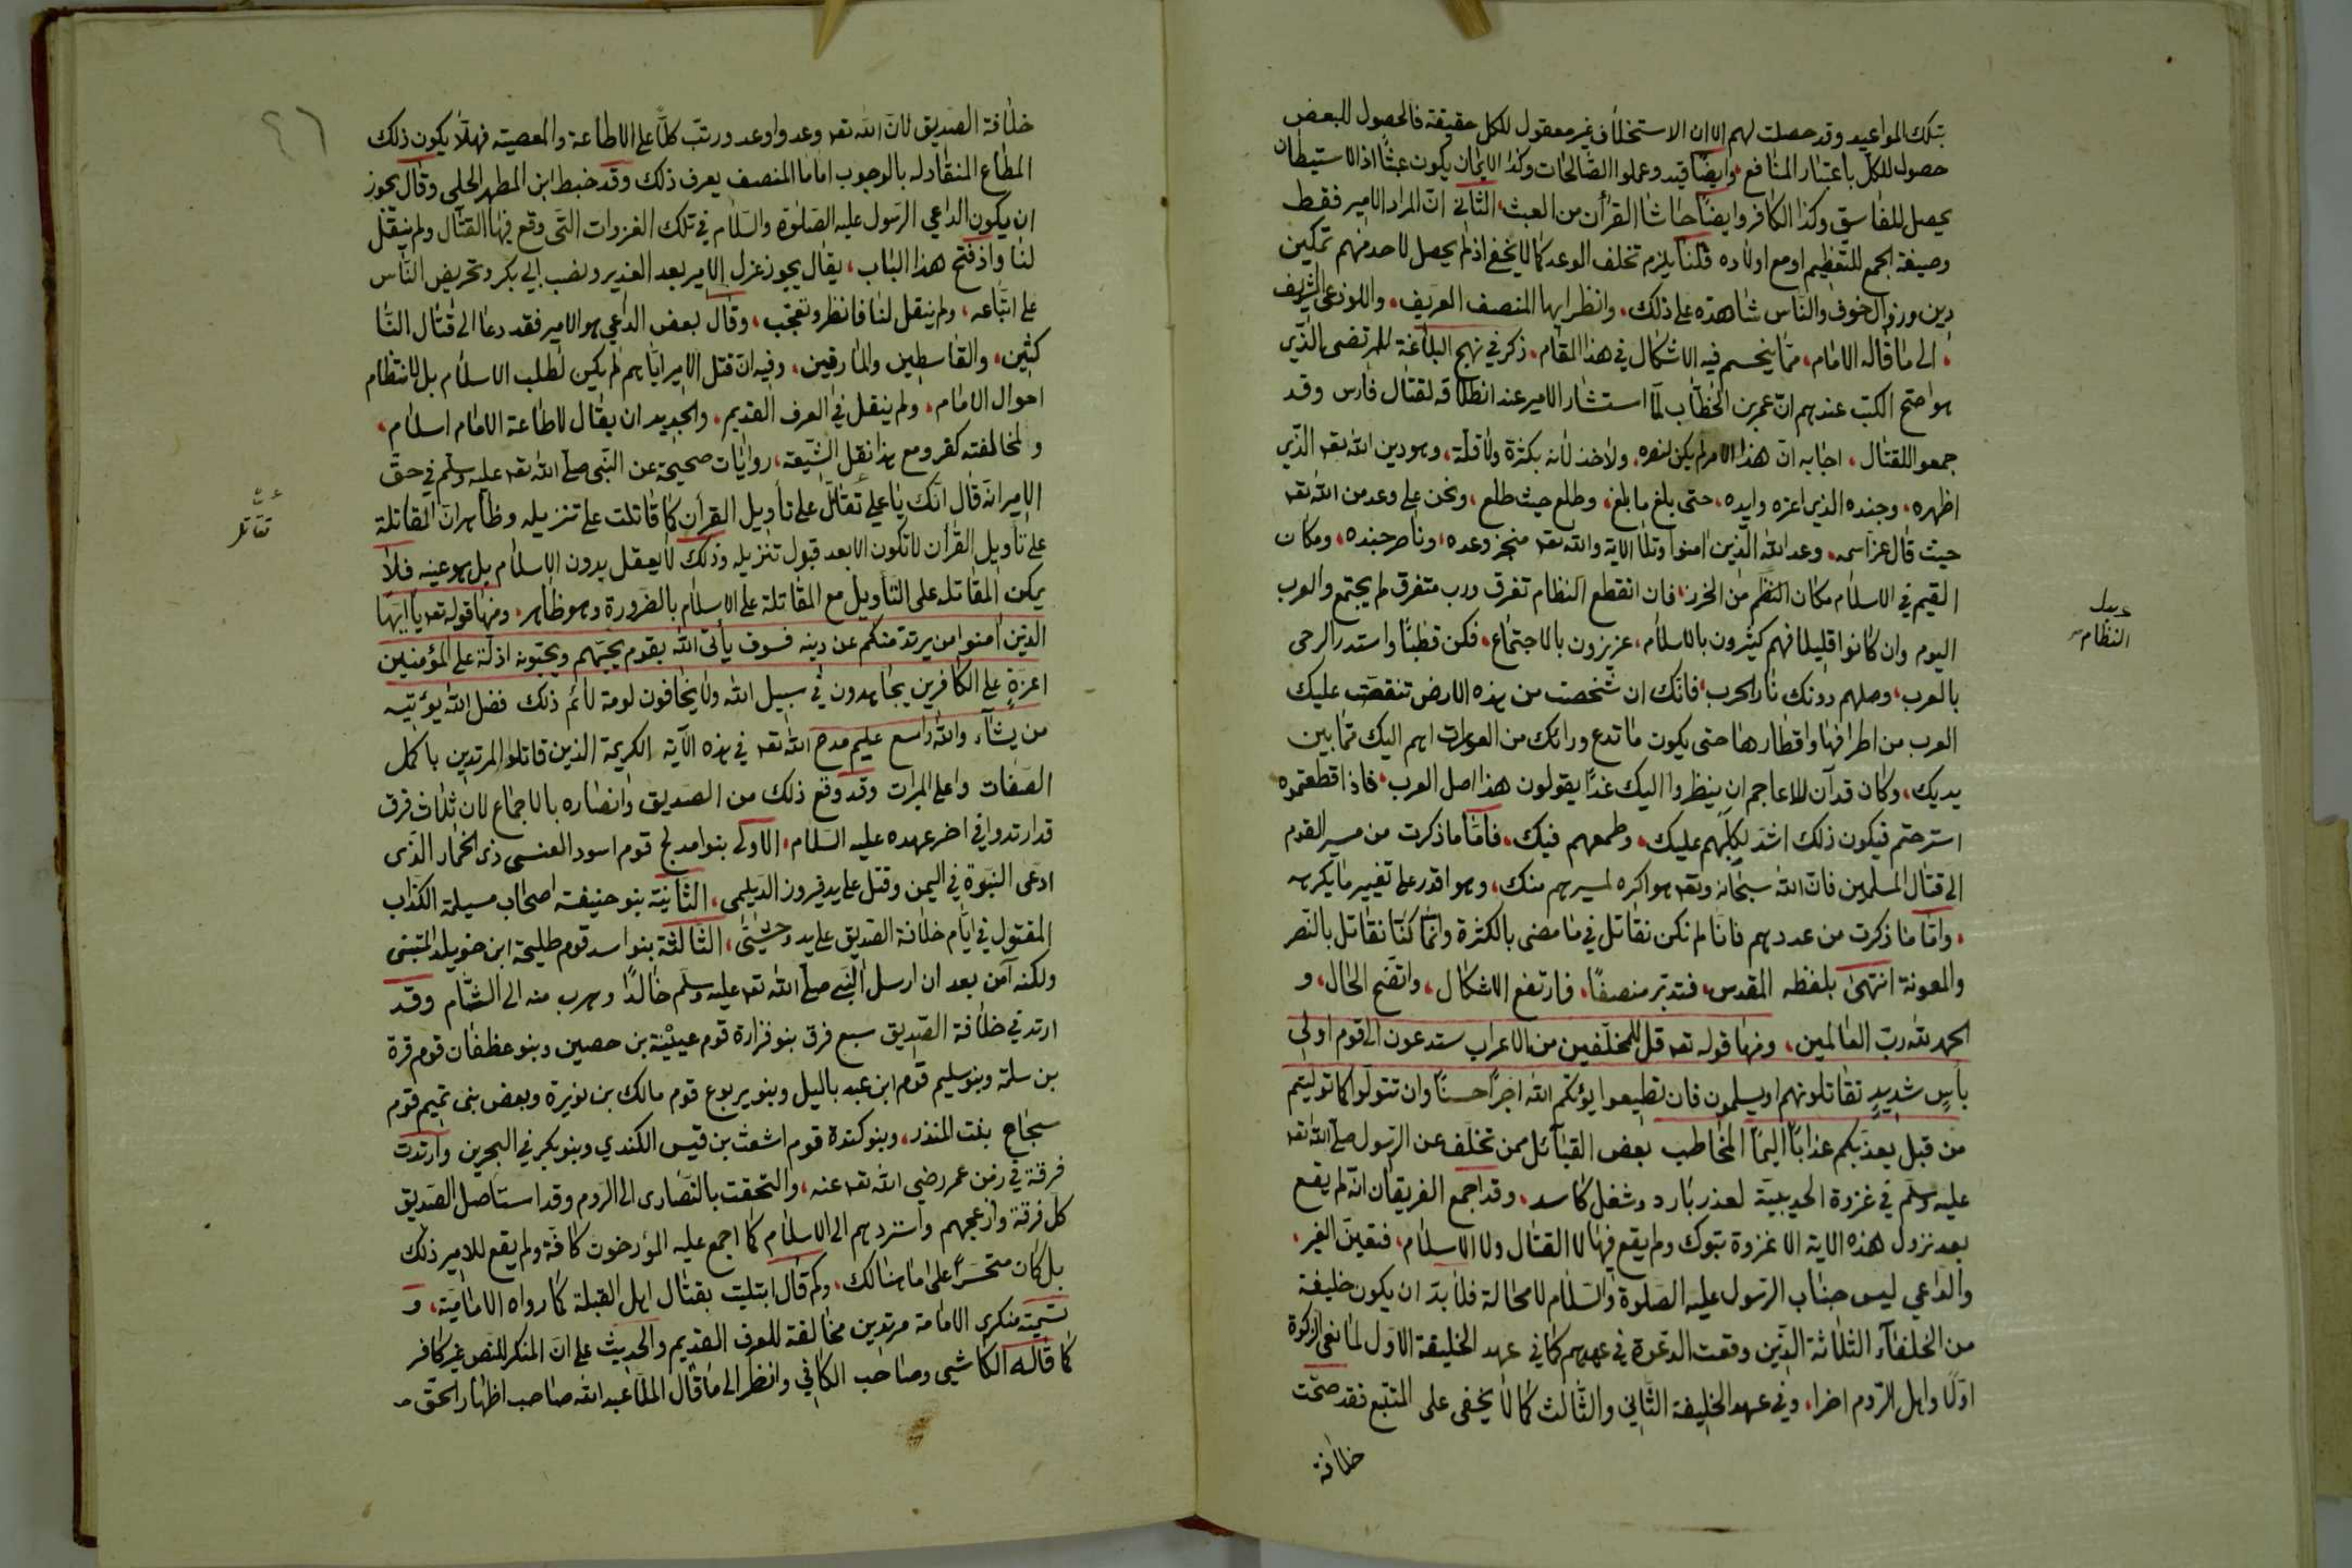 بتلك المواعيد وقد حصلت لهم الا ان الاستخلاف غير معقول للكل حقيقة فالحصول للبعض
حصول للكل باعتبار المنافع وايضا قيد وعملوا الصالحات وكذا الايمان يكون عبثا اذ الاستيطان
يحصل للفاسق وكذا الكافر وايضا حاشا القرأن من العبث، الثاني ان المراد الامير فقط
وصيغة الجمع للتعظيم او مع اولاده قلنا يلزم تخلف الوعد كما لا يخفى اذ لم يحصل لاحد منهم تمكين
دين وزوال الخوف والناس شاهدة على ذلك، وانظر ايها المنصف العريف، واللوذعي الشريف
، الى ما قاله الامام، مما ينحسم فيه الاشكال في هذا المقام، ذكر في نهج البلاغة للمرتضى الذي
هو اصح الكتب عندهم ان عمر بن الخطاب لما استشار الامير عند انطلاقه لقتال فارس وقد
جمعوا للقتال، اجابه ان هذا الامر لم يكن نصره، ولا خذلانه بكثرة ولا قلة، وهو دين الله تعه الذي
اظهره، وجنده الذي اعزه وايده، حتى بلغ ما بلغ، وطلع حيث طلع، ونحن على وعد من الله تعه
حيث قال عز اسمه، وعد الله الذين امنوا وتلا الاية والله تعه منجز وعده، وناصر جنده، ومكان
القيم في الاسلام مكان النظم من الخرز، فان انقطع النظام تفرق ورب متفرق لم يجتمع والعرب
اليوم وان كانوا قليلا فهم كثيرون بالاسلام، عزيزون بالاجتماع، فكن قطبا واستدر الرحى
بالعرب، وصلهم دونك نار الحرب، فانك ان شخصت من هذه الارض تنقصت عليك
العرب من اطرافها واقطارها حتى يكون ما تدع ورائك من العورات اهم اليك مما بين
يديك، وكان قد آن للاعاجم ان ينظروا اليك غدا يقولون هذا اصل العرب، فاذا قطعتموه
استرحتم فيكون ذلك اشد لكلبهم عليك، وطمعهم فيك، فاما ما ذكرت من مسير القوم
الى قتال المسلمين فان الله سبحانه وتعه هو اكره لمسيرهم منك، وهو اقدر على تغيير ما يكره
، واما ما ذكرت من عددهم فانا لم نكن نقاتل في ما مضى بالكثرة وانما كنا نقاتل بالنصر
والمعونة انتهى بلفظه المقدس، فتدبر منصفا، فارتفع الاشكال، واتضح الحال، و
الحمد لله رب العالمين، ومنها قوله تعه قل للمخلفين من الاعراب ستدعون الى قوم اولي
بأس شديد تقاتلونهم او يسلمون فان تطيعوا يؤتكم الله اجرا حسنا وان تتولوا كما توليتم
من قبل يعذبكم عذابا اليما المخاطب بعض القبائل ممن تخلف عن الرسول صلى الله تعه
عليه وسلم في غزوة الحديبية لعذر بارد وشغل كاسد، وقد اجمع الفريقان انه لم يقع
بعد نزول هذه الاية الا غزوة تبوك ولم يقع فيها لا القتال ولا الاسلام، فتعين الغير،
والداعي ليس جناب الرسول عليه الصلوة والسلام لا محالة فلا بد ان يكون خليفة
من الخلفاء الثلاثة الذين وقعت الدعوة في عهدهم كما في عهد الخليفة الاول لمانعي الزكوة
اولا واهل الروم اخرا، وفي عهد الخليفة الثاني والثالث كما لا يخفى على المتتبع فقد صحت
خلافة
النظام
٤٦
خلافة الصديق لان الله تعه وعد واوعد ورتب كلا على الاطاعة والمعصية فهلا يكون ذلك
المطاع المنقاد له بالوجوب اماما المنصف يعرف ذلك وقد خبط ابن المطهر الحلي وقال يجوز
ان يكون الداعي الرسول عليه الصلوة والسلام في تلك الغزوات التي وقع فيها القتال ولم ينقل
لنا واذ فتح هذا الباب، يقال يجوز عزل الامير بعد الغدير ونصب ابي بكر وتحريض الناس
على اتباعه، ولم ينقل لنا فانظر وتعجب، وقال بعض الداعي هو الامير فقد دعا الى قتال النا
كثين، والقاسطين والمارقين، وفيه ان قتل الامير اياهم لم يكن لطلب الاسلام بل لانتظام
احوال الامام، ولم ينقل في العرف القديم، والجديد ان يقال لاطاعة الامام اسلام،
ولمخالفته كفر ومع هذا نقل الشيعة، روايات صحيحة عن النبي صلى الله تعه عليه وسلم في حق
الامير انه قال انك يا علي تقاتل على تأويل القرأن كما قاتلت على تنزيله وظاهر ان المقاتلة
على تأويل القرأن لا تكون الا بعد قبول تنزيله وذلك لا يعقل بدون الاسلام بل هو عينه فلا
يمكن المقاتلة على التأويل مع المقاتلة على الاسلام بالضرورة وهو ظاهر، ومنها قوله تعه يا ايها
الذين امنوا من يرتد منكم عن دينه فسوف يأتى الله بقوم يحبهم ويحبونه اذلة على المؤمنين
اعزة على الكافرين يجاهدون في سبيل الله ولا يخافون لومة لائم ذلك فضل الله يؤتيه
من يشاء والله واسع عليم مدح الله تعه في هذه الآية الكريمة الذين قاتلوا المرتدين باكمل
الصفات واعلى المبرات وقد وقع ذلك من الصديق وانصاره بالاجماع لان ثلاث فرق
قد ارتدوا في اخر عهده عليه السلام، الاولى بنوا مدلج قوم اسود العنسى ذى الخمار الذى
ادعى النبوة في اليمن وقتل على يد فيروز الديلمى، الثانية بنو حنيفة اصحاب مسيلمة الكذاب
المقتول في ايام خلافة الصديق على يد وحشى، الثالثة بنو اسد قوم طليحة ابن خويلد المتبنى
ولكنه آمن بعد ان ارسل النبي صلى الله تعه عليه وسلم خالدا وهرب منه الى الشام وقد
ارتد في خلافة الصديق سبع فرق بنو فزارة قوم عيينة بن حصين وبنو غطفان قوم قرة
بن سلمة وبنو سليم قوم ابن عبد ياليل وبنو يربوع قوم مالك بن نويرة وبعض بنى تميم قوم
سجاح بنت المنذر، وبنو كندة قوم اشعث بن قيس الكندي وبنو بكر في البحرين وارتدت
فرقة في زمن عمر رضي الله تعه عنه، والتحقت بالنصارى الى الروم وقد استأصل الصديق
كل فرقة وازعجهم واستردهم الى الاسلام كما اجمع عليه المؤرخون كافة ولم يقع للامير ذلك
بل كان متحسرا على ما هنالك، وكم قال ابتليت بقتال اهل القبلة كما رواه الامامية، و
تسمية منكرى الامامة مرتدين مخالفة للعرف القديم والحديث على ان المنكر للنص غير كافر
كما قاله الكاشي وصاحب الكافي وانظر الى ما قال الملا عبد الله صاحب اظهار الحق
تقاتل